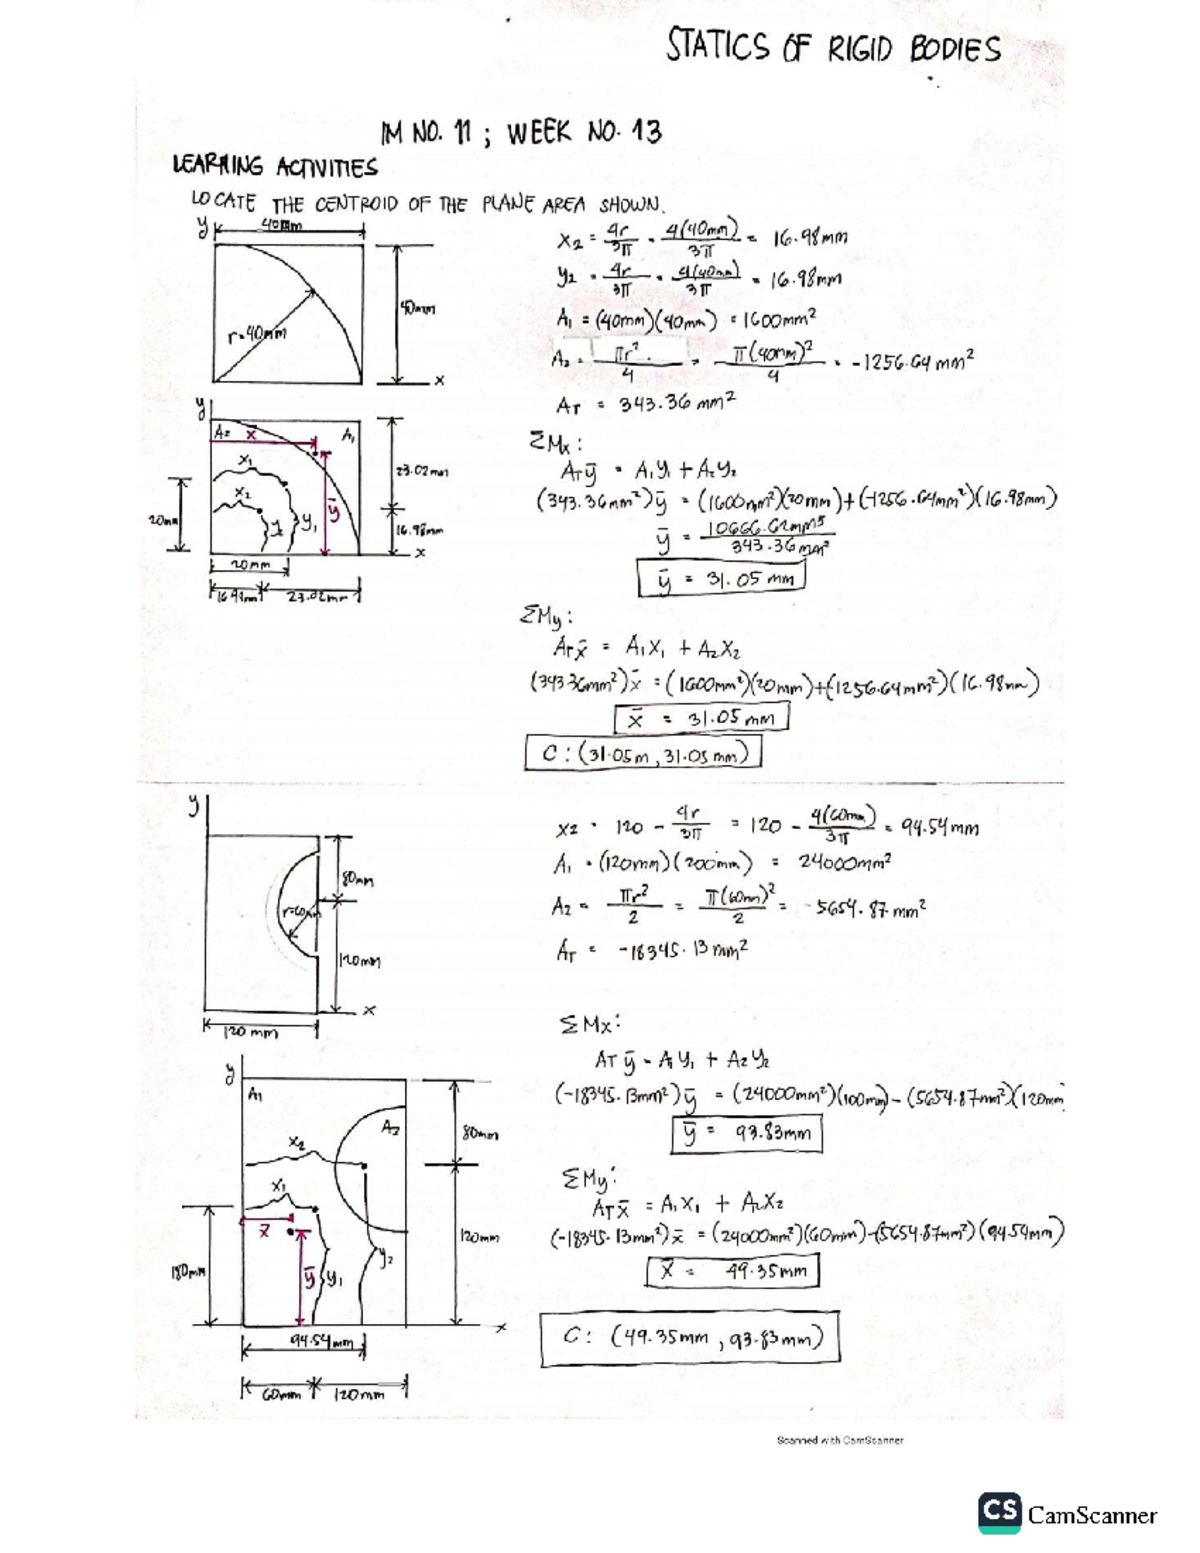 STATICS OF RIGID BODIES
IM NO. 11 ; WEEK NO. 13
LEARNING ACTIVITIES
LOCATE THE CENTROID OF THE PLANE AREA SHOWN.
y
40mm
r=40mm
40mm
x
x2 = 4r/3π = 4(40mm)/3π = 16.98mm
y2 = 4r/3π = 4(40mm)/3π = 16.98mm
A1 = (40mm)(40mm) = 1600mm²
A2 = πr²/4 = π(40mm)²/4 = -1256.64 mm²
AT = 343.36 mm²
y
A2 x̄ A1
x1
x2
y1
ȳ
20mm
23.02mm
16.98mm
x
20mm
16.98mm 23.02mm
ΣMx:
ATȳ = A1y1 + A2y2
(343.36mm²)ȳ = (1600mm²)(20mm)+(-1256.64mm²)(16.98mm)
ȳ = 10666.62mm³/343.36mm²
ȳ = 31.05 mm
ΣMy:
ATx̄ = A1X1 + A2X2
(343.36mm²)x̄ = (1600mm²)(20mm)+(-1256.64mm²)(16.98mm)
x̄ = 31.05 mm
C : (31.05m, 31.05 mm)
y
80mm
r=60mm
120mm
x
120 mm
x2 = 120 - 4r/3π = 120 - 4(60mm)/3π = 94.54mm
A1 = (120mm)(200mm) = 24000mm²
A2 = πr²/2 = π(60mm)²/2 = -5654.87 mm²
AT = -18345.13 mm²
y
A1
A2
x2
x1
x̄
ȳ
y1
y2
80mm
120mm
180mm
x
94.54mm
60mm 120mm
ΣMx:
AT ȳ = A1y1 + A2y2
(-18345.13mm²)ȳ = (24000mm²)(100mm)-(5654.87mm²)(120mm
ȳ = 93.83mm
ΣMy:
ATx̄ = A1X1 + A2X2
(-18345.13mm²)x̄ = (24000mm²)(60mm)-(5654.87mm²)(94.54mm)
x̄ = 49.35mm
C: (49.35mm, 93.83mm)
Scanned with CamScanner
CS CamScanner